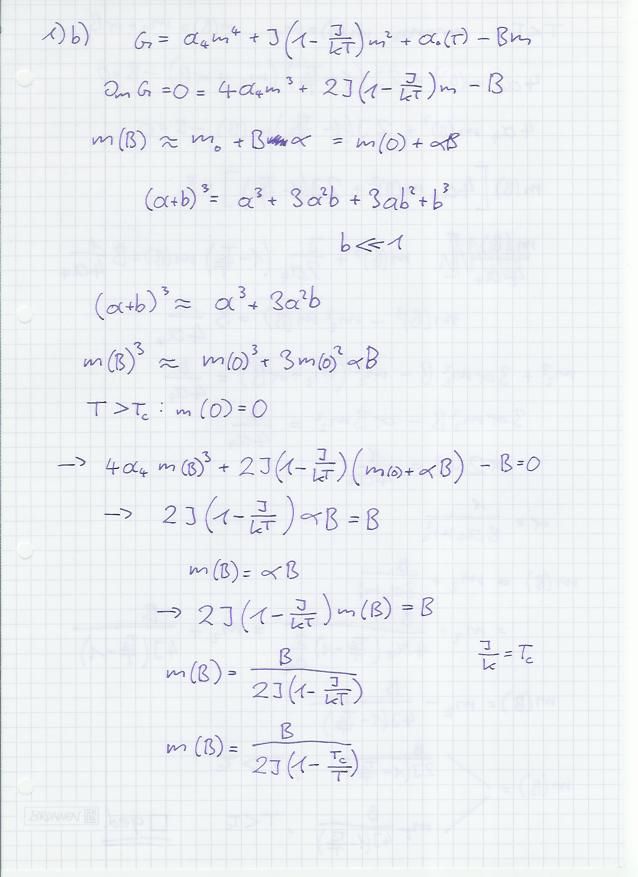 1)b) G = a₄m⁴ + J(1 - J/kT)m² + a₀(T) - Bm
∂ₘG = 0 = 4a₄m³ + 2J(1 - J/kT)m - B
m(B) ≈ m₀ + Bα = m(0) + αB
(a+b)³ = a³ + 3a²b + 3ab² + b³
b ≪ 1
(a+b)³ ≈ a³ + 3a²b
m(B)³ ≈ m(0)³ + 3m(0)² αB
T > T_c : m(0) = 0
→ 4a₄ m(B)³ + 2J(1 - J/kT)(m(0) + αB) - B = 0
→ 2J(1 - J/kT) αB = B
m(B) = αB
→ 2J(1 - J/kT) m(B) = B
m(B) = B / 2J(1 - J/kT) J/k = T_c
m(B) = B / 2J(1 - T_c/T)